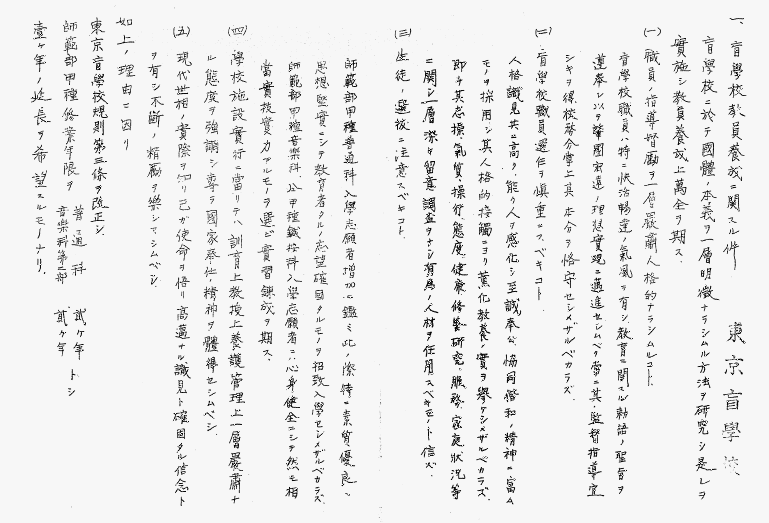 一、盲學校教員養成ニ關スル件
東京盲學校
盲學校ニ於テ國體ノ本義ヲ一層明徴ナラシムル方法ヲ研究シ是レヲ
實施シ教員養成上萬全ヲ期ス
(一) 職員ノ指導督勵ヲ一層嚴肅人格的ナラシムルコト
盲學校職員ハ特ニ快活暢達ノ氣風ヲ有シ教育ニ關スル勅語ノ聖旨ヲ
遵奉シ以テ肇國宏遠ノ理想實現ニ邁進セシムベク常ニ其監督指導宜
シキヲ得校務分掌上其本分ヲ恪守セシメザルベカラズ
(二) 盲學校職員選任ヲ愼重ニスベキコト
人格識見共ニ高ク能ク人ヲ感化シ至誠奉公協同偕和ノ精神ニ富ム
モノヲ採用シ其人格的接觸ニヨリ薫化教養ノ實ヲ擧ゲシメザルベカラズ
即チ其志操氣質操行態度健康修養研究服務家庭狀況等
ニ關シ一層深ク留意調査ヲナシ有爲ノ人材ヲ任用スベキモノト信ズ
(三) 生徒ノ選拔ニ注意スベキコト
師範部甲種普通科入學志願者增加ニ鑑ミ此ノ際特ニ素質優良ニ
思想堅實ニシテ教育者タルノ志望確固タルモノヲ招致入學セシメザルベカラズ
師範部甲種音樂科及甲種鍼按科入學志願者ニハ心身健全ニシテ然モ相
當實技實力アルモノヲ選ビ實習錬成ヲ期ス
(四) 學校施設實行ニ當リテハ訓育上教授上養護管理上一層嚴肅ナ
ル態度ヲ強調シ專ラ國家奉仕精神ヲ體得セシムベシ
(五) 現代世相ノ實際ヲ知リ己ガ使命ヲ悟リ高邁ナル識見ト確固タル信念ト
ヲ有シ不斷ノ精勵ヲ樂シマシムベシ
如上ノ理由ニ因リ
東京盲學校規則第三條ヲ改正シ
師範部甲種修業年限ヲ 普通科 貳ヶ年 トシ
音樂科第二部 貳ヶ年
壹ヶ年ノ延長ヲ希望スルモノナリ